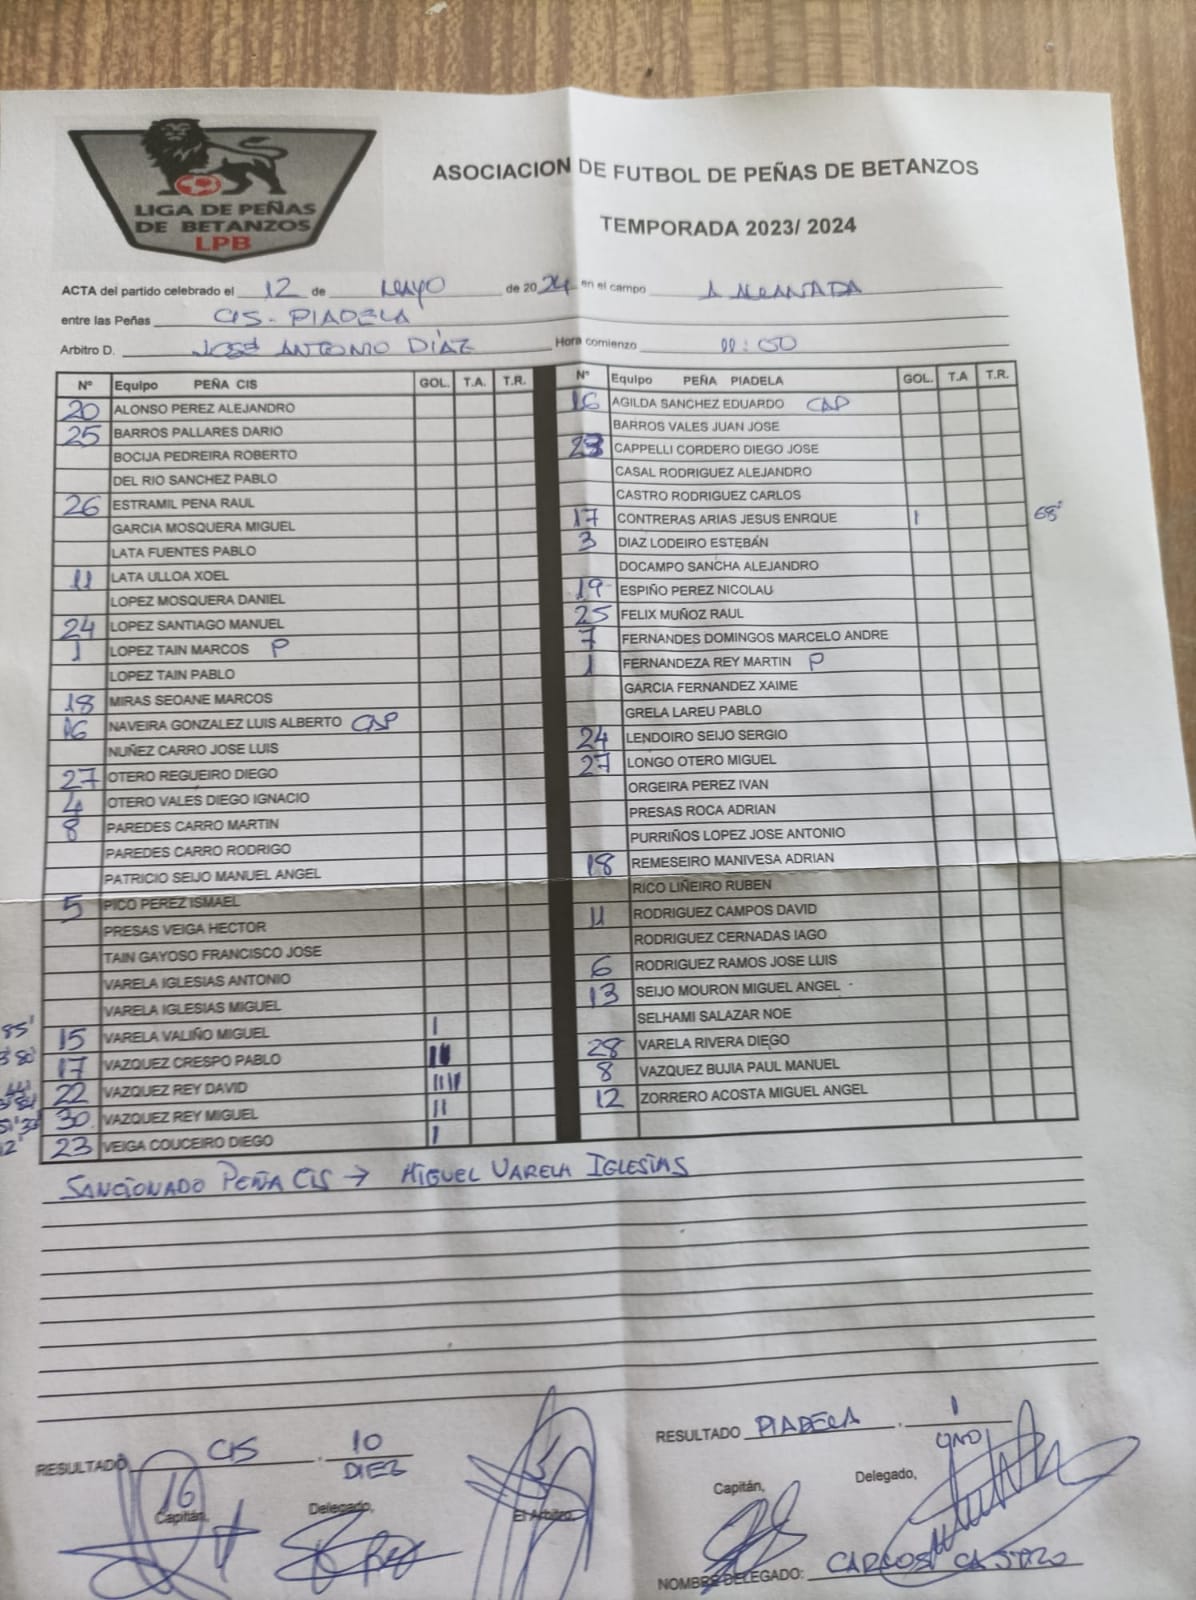 LIGA DE PEÑAS
DE BETANZOS
LPB
ASOCIACION DE FUTBOL DE PEÑAS DE BETANZOS
TEMPORADA 2023/ 2024
ACTA del partido celebrado el 12 de MAYO de 2024 en el campo
entre las Peñas CIS - PIADELA
Arbitro D. JOSÉ ANTONIO DÍAZ Hora comienzo 11:00
Nº Equipo PEÑA CIS GOL. T.A. T.R.
20 ALONSO PEREZ ALEJANDRO
25 BARROS PALLARES DARIO
BOCIJA PEDREIRA ROBERTO
DEL RIO SANCHEZ PABLO
26 ESTRAMIL PENA RAUL
GARCIA MOSQUERA MIGUEL
LATA FUENTES PABLO
11 LATA ULLOA XOEL
LOPEZ MOSQUERA DANIEL
24 LOPEZ SANTIAGO MANUEL
1 LOPEZ TAIN MARCOS P
LOPEZ TAIN PABLO
18 MIRAS SEOANE MARCOS
16 NAVEIRA GONZALEZ LUIS ALBERTO CAP
NUÑEZ CARRO JOSE LUIS
27 OTERO REGUEIRO DIEGO
4 OTERO VALES DIEGO IGNACIO
8 PAREDES CARRO MARTIN
PAREDES CARRO RODRIGO
PATRICIO SEIJO MANUEL ANGEL
5 PICO PEREZ ISMAEL
PRESAS VEIGA HECTOR
TAIN GAYOSO FRANCISCO JOSE
VARELA IGLESIAS ANTONIO
VARELA IGLESIAS MIGUEL
85' 15 VARELA VALIÑO MIGUEL I
80' 17 VAZQUEZ CRESPO PABLO
22 VAZQUEZ REY DAVID
30 VAZQUEZ REY MIGUEL II
12' 23 VEIGA COUCEIRO DIEGO I
Nº Equipo PEÑA PIADELA GOL. T.A T.R.
16 AGILDA SANCHEZ EDUARDO CAP
BARROS VALES JUAN JOSE
23 CAPPELLI CORDERO DIEGO JOSE
CASAL RODRIGUEZ ALEJANDRO
CASTRO RODRIGUEZ CARLOS
17 CONTRERAS ARIAS JESUS ENRQUE I 68'
3 DIAZ LODEIRO ESTEBÁN
DOCAMPO SANCHA ALEJANDRO
19 ESPIÑO PEREZ NICOLAU
25 FELIX MUÑOZ RAUL
7 FERNANDES DOMINGOS MARCELO ANDRE
1 FERNANDEZA REY MARTIN P
GARCIA FERNANDEZ XAIME
GRELA LAREU PABLO
24 LENDOIRO SEIJO SERGIO
27 LONGO OTERO MIGUEL
ORGEIRA PEREZ IVAN
PRESAS ROCA ADRIAN
PURRIÑOS LOPEZ JOSE ANTONIO
18 REMESEIRO MANIVESA ADRIAN
RICO LIÑEIRO RUBEN
11 RODRIGUEZ CAMPOS DAVID
RODRIGUEZ CERNADAS IAGO
6 RODRIGUEZ RAMOS JOSE LUIS
13 SEIJO MOURON MIGUEL ANGEL
SELHAMI SALAZAR NOE
28 VARELA RIVERA DIEGO
8 VAZQUEZ BUJIA PAUL MANUEL
12 ZORRERO ACOSTA MIGUEL ANGEL
SANCIONADO PEÑA CIS → MIGUEL VARELA IGLESIAS
RESULTADO CIS . 10
DIEZ
16
Capitán, Delegado, El Arbitro,
RESULTADO PIADELA . 1
UNO
Capitán, Delegado,
NOMBRE DELEGADO: CARLOS CASTRO